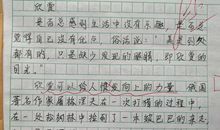 欣赏
是否总感到生活中没有乐趣，是否总
觉得自己没有优点。俗话说：“美是到处
都有的，只是缺少发现的眼睛，即欣赏的
目光。”
欣赏可以给人积极向上的力量。俄国
著名作家屠格涅夫在一次打猎的过程中，
在一处松树林中捡到了一本皱巴巴的杂志